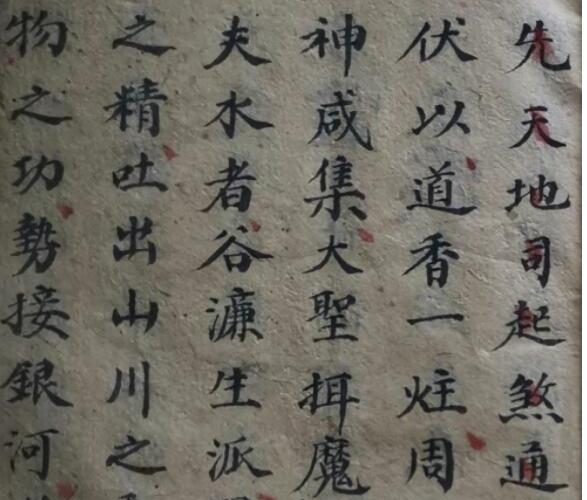 先天地司起煞通
伏以道香一炷周
神咸集大聖揖魔
夫水者谷濂生派
之精吐出山川之
物之功勢接銀河